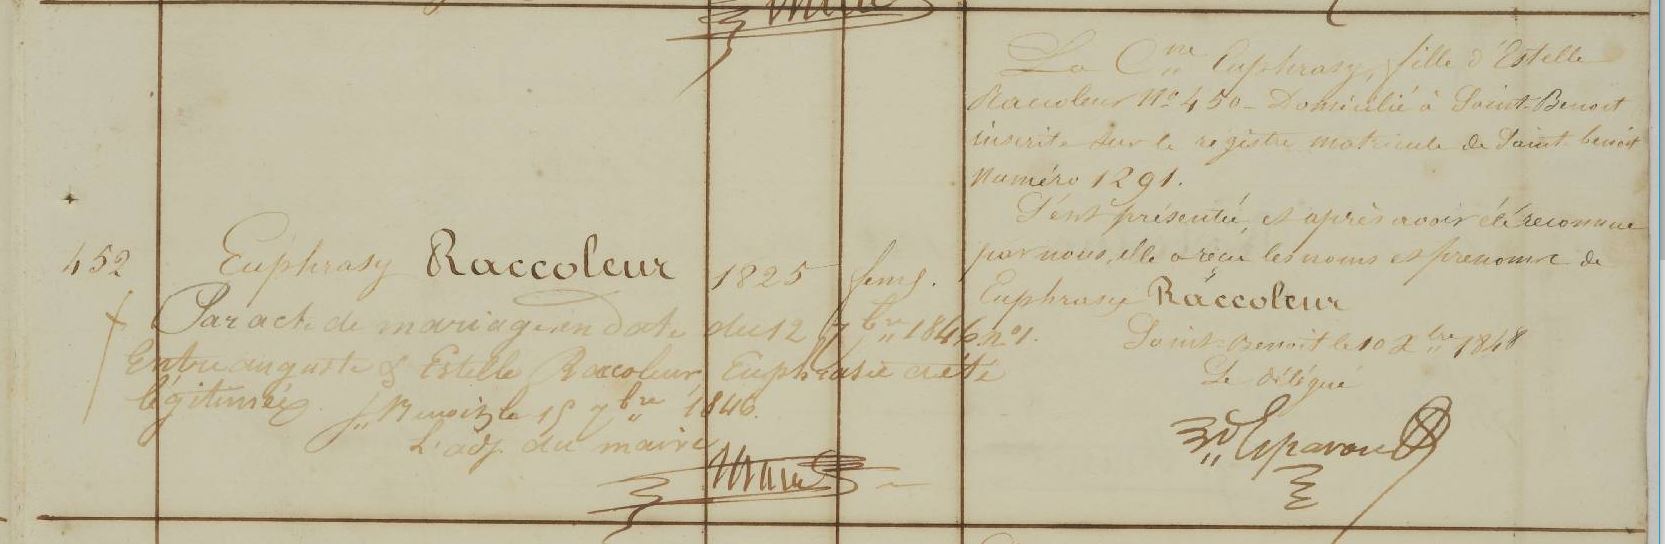 452
Euphrasy Raccoleur 1825 fem.
Par acte de mariage en date du 12 7bre 1846 no 1.
Entre auguste & Estelle Raccoleur Euphrasie a été
légitimée St Benoit le 15 7bre 1846.
L'adj. du maire
La Cne Euphrasy, fille d'Estelle
Raccoleur No 450 - Domicilié à Saint-Benoit
inscrite sur le registre matricule de Saint benoit
Numéro 1291.
S'est présentée, et après avoir été reconnue
par nous, elle a reçu les noms et prenoms de
Euphrasy Raccoleur
Saint-Benoit le 10 Xbre 1848
Le délégué